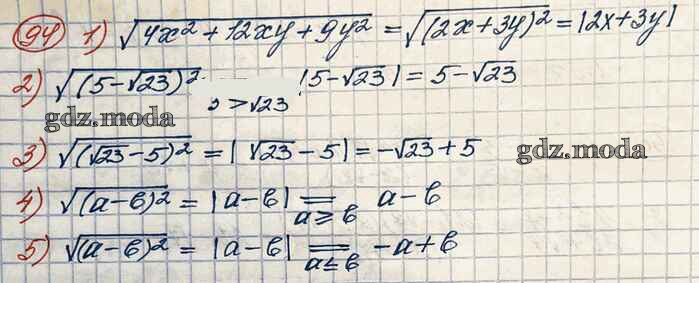 94 1) √(4x² + 12xy + 9y²) = √((2x+3y)²) = |2x+3y|
2) √((5-√23)²) |5-√23| = 5-√23
>√23
gdz.moda
3) √((√23-5)²) = |√23-5| = -√23+5
gdz.moda
4) √((a-b)²) = |a-b| = a-b
a≥b
5) √((a-b)²) = |a-b| = -a+b
a≤b